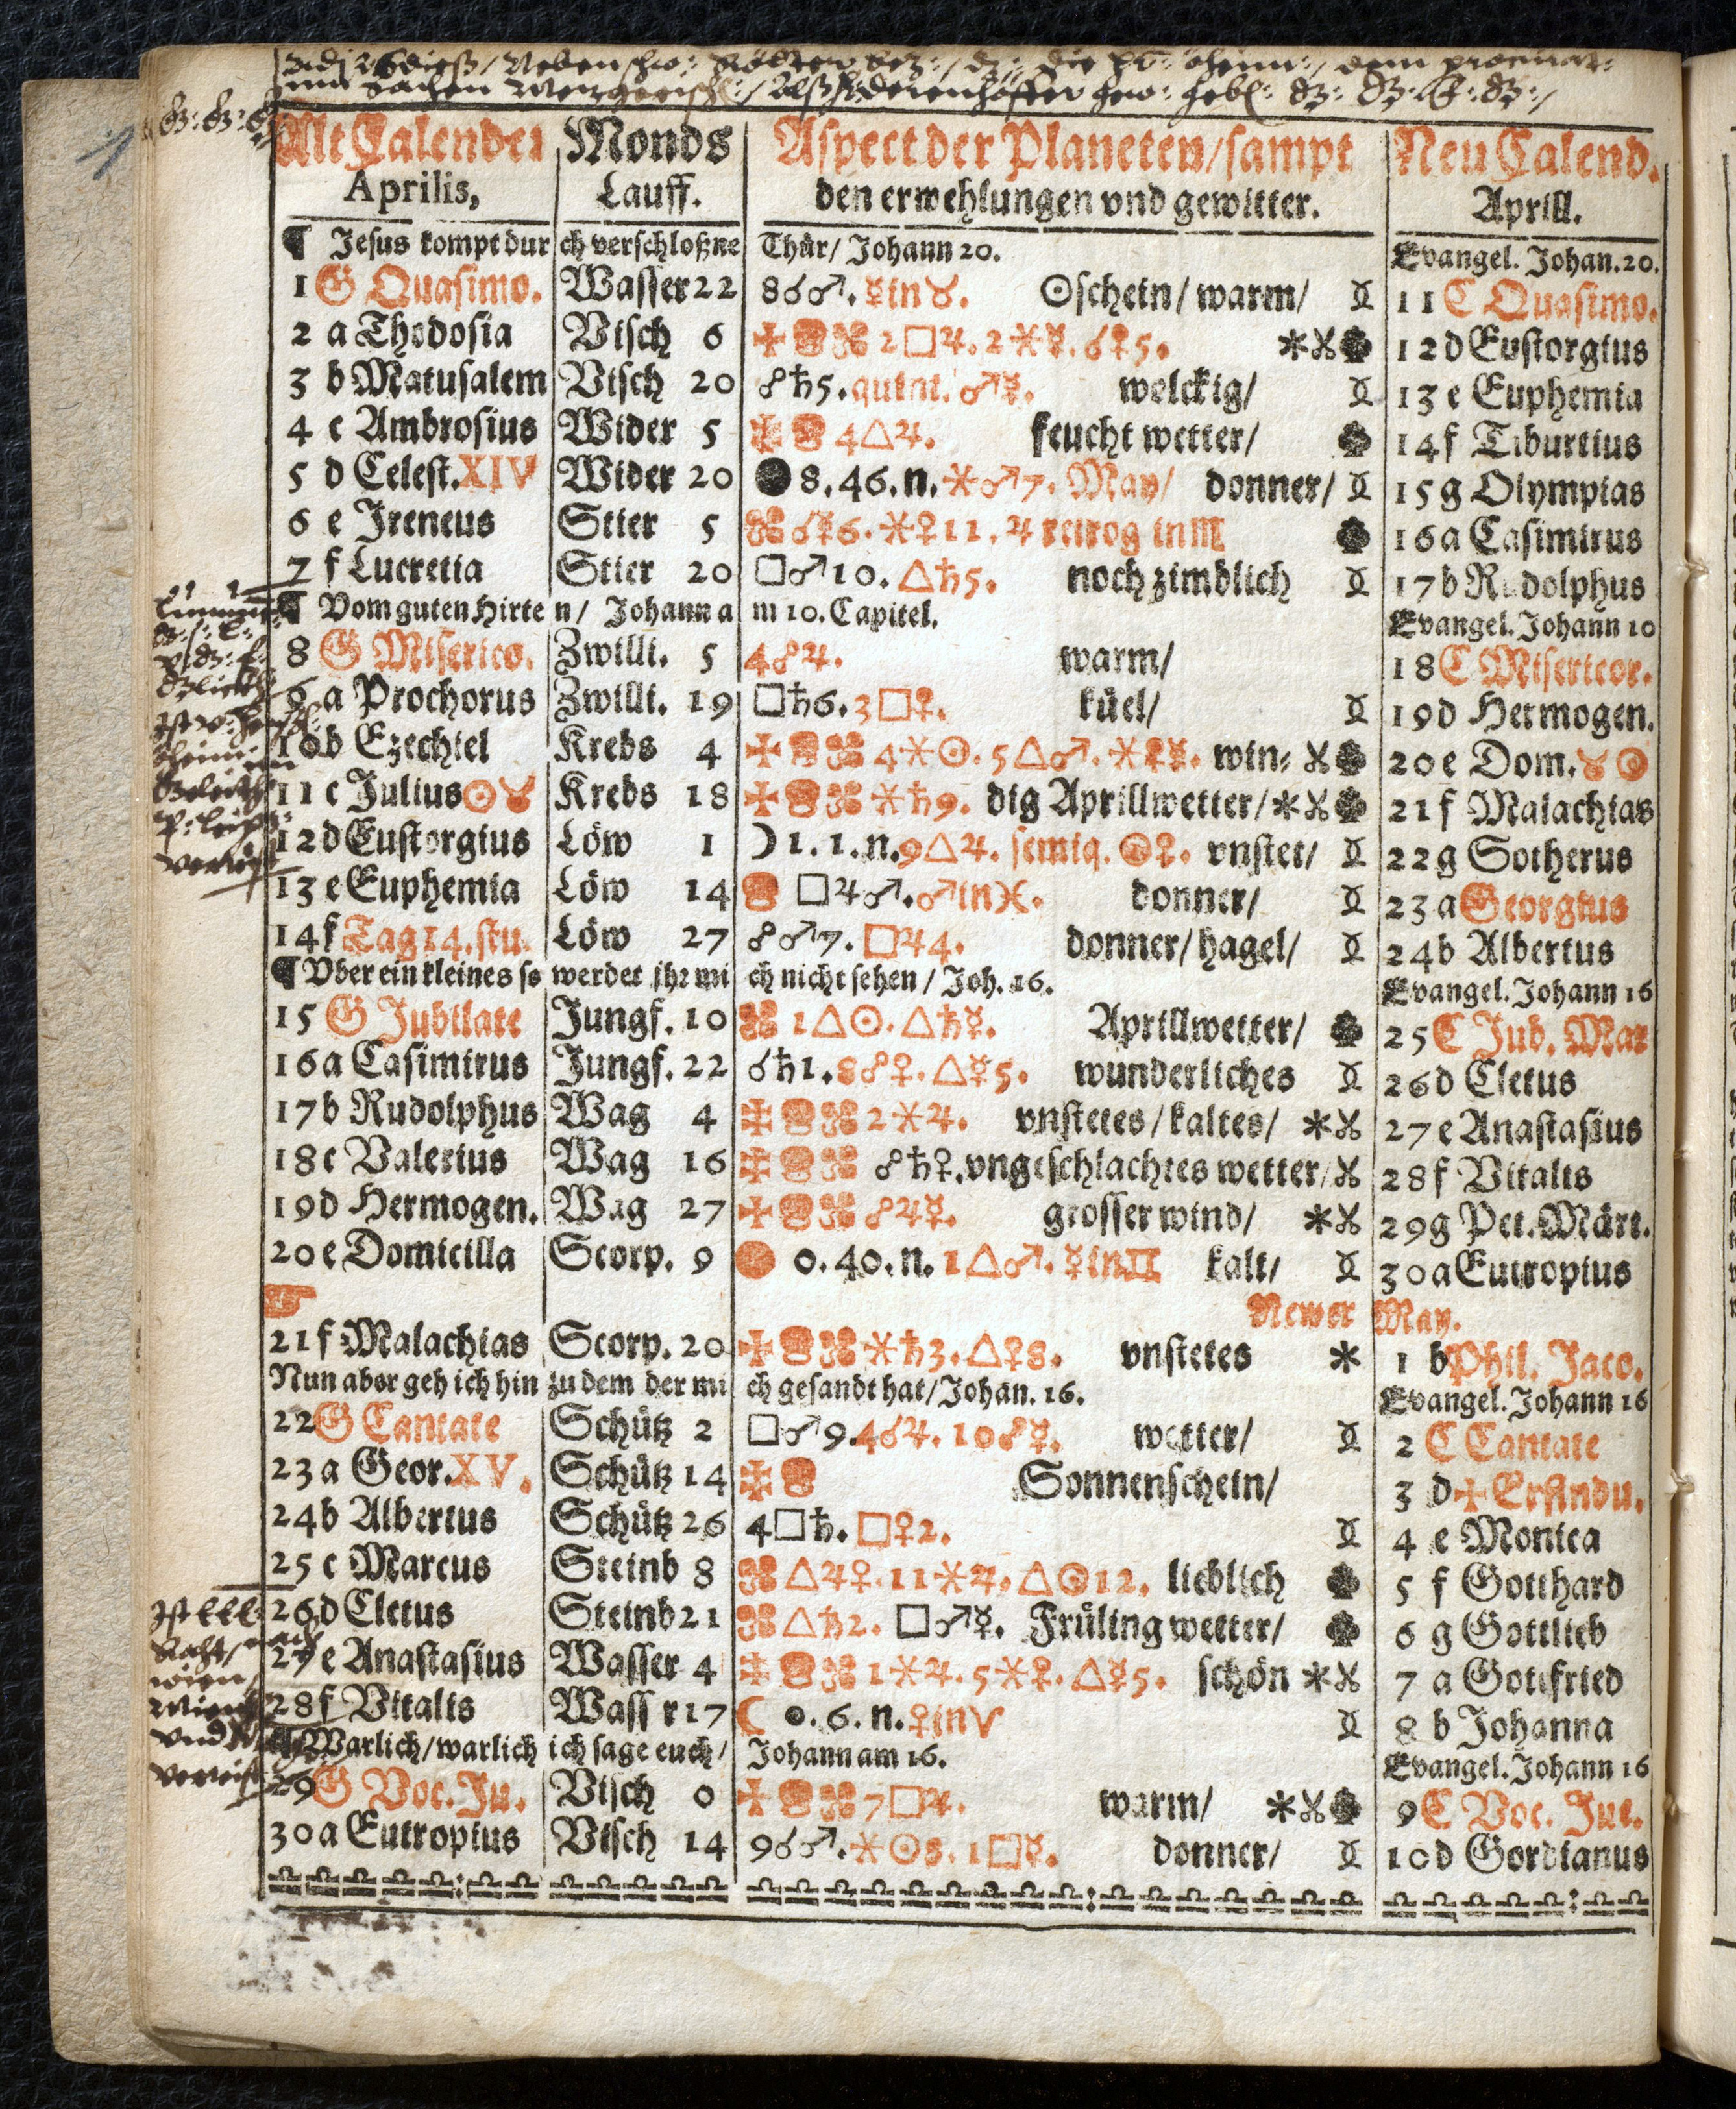 Alt Calender Monds Aspect der Planeten/sampt Neu Calend.
Aprilis, Lauff. den erwehlungen vnd gewitter. Aprill.
¶ Jesus kompt durch verschloßne Thür/ Johann 20. Evangel. Johan. 20.
1 G Quasimo. Wasser 22 8☌♂. ☿in♉. ☉schein/ warm/ 11 C Quasimo.
2 a Thodosia Visch 6 2□♃. 2⚹☿. ☌♀5. 12 d Eustorgius
3 b Matusalem Visch 20 ☍♄5. quint. ♂☿. welckig/ 13 e Euphemia
4 c Ambrosius Wider 5 4△♃. feucht wetter/ 14 f Tiburtius
5 d Celest. XIV Wider 20 ● 8. 46. n. ⚹♂7. May/ donner/ 15 g Olympias
6 e Ireneus Stier 5 ☌☿6. ⚹♀11. ♃ retrog in♏ 16 a Casimirus
7 f Lucretia Stier 20 □♂10. △♄5. noch zimblich 17 b Rudolphus
¶ Vom guten Hirten/ Johann am 10. Capitel. Evangel. Johann 10
8 G Miserico. Zwilli. 5 4☍♃. warm/ 18 C Misericor.
9 a Prochorus Zwilli. 19 □♄6. 3□♀. küel/ 19 d Hermogen.
10 b Ezechiel Krebs 4 4⚹☉. 5△♂. ⚹♀☿. win⸗ 20 e Dom. ♉☉
11 c Julius ☉♉ Krebs 18 ⚹♄9. dig Aprillwetter/ 21 f Malachias
12 d Eustorgius Löw 1 ☽ 1. 1. n. 9△♃. semiq. ☉♀. vnstet/ 22 g Sotherus
13 e Euphemia Löw 14 □♃♂. ♂in♓. donner/ 23 a Georgius
14 f Tag 14. stu. Löw 27 ☍♂7. □♃4. donner/ hagel/ 24 b Albertus
¶ Vber ein kleines so werdet ihr mich nicht sehen/ Joh. 16. Evangel. Johann 16
15 G Jubilate Jungf. 10 1△☉. △♄☿. Aprillwetter/ 25 C Jub. Mar
16 a Casimirus Jungf. 22 ☌♄1. 8☍♀. △☿5. wunderliches 26 d Cletus
17 b Rudolphus Wag 4 2⚹♃. vnstetes/ kaltes/ 27 e Anastasius
18 c Valerius Wag 16 ☍♄♀. vngeschlachtes wetter/ 28 f Vitalis
19 d Hermogen. Wag 27 ☍♃☿. grosser wind/ 29 g Pet. Märt.
20 e Domicilla Scorp. 9 0. 40. n. 1△♂. ☿in♊ kalt/ 30 a Eutropius
☞ Newer May.
21 f Malachias Scorp. 20 ⚹♄3. △♀8. vnstetes 1 b Phil. Jaco.
Nun aber geh ich hin zu dem der mich gesandt hat/ Johan. 16. Evangel. Johann 16
22 G Cantate Schütz 2 □♂9. 4☌♃. 10☍☿. wetter/ 2 C Cantate
23 a Geor. XV. Schütz 14 Sonnenschein/ 3 d ✠ Erfindu.
24 b Albertus Schütz 26 4□♄. □♀2. 4 e Monica
25 c Marcus Steinb 8 △♃♀. 11⚹♃. △☉12. lieblich 5 f Gotthard
26 d Cletus Steinb 21 △♄2. □♂☿. Früling wetter/ 6 g Gottlieb
27 e Anastasius Wasser 4 1⚹♃. 5⚹♀. △☿5. schön 7 a Gottfried
28 f Vitalis Wass r 17 ☾ 0. 6. n. ♀in♈ 8 b Johanna
¶ Warlich/ warlich ich sage euch/ Johann am 16. Evangel. Johann 16
29 G Voc. Ju. Visch 0 7□♃. warm/ 9 C Voc. Juc.
30 a Eutropius Visch 14 9☌♂. ⚹☉8. 1□☿. donner/ 10 d Gordianus